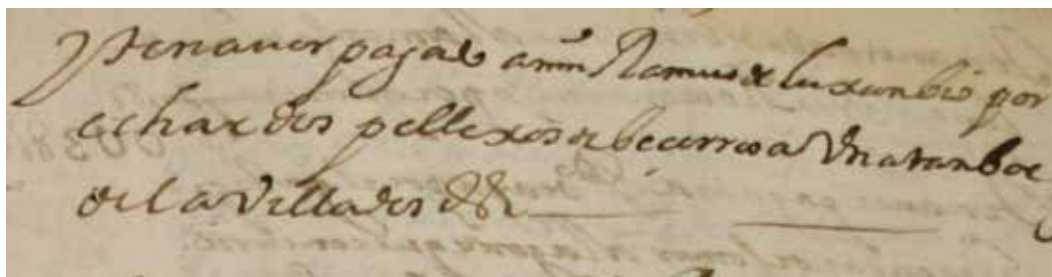 Yten aver pagado a mīn Ramus de luxanbio por
echar dos pellexos de becerros a Un atanbor
de la Villa dos ds